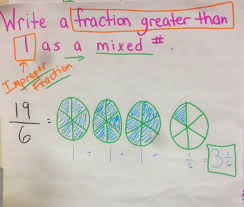 Write a fraction greater than
1 as a mixed #.
Improper
Fraction
19/6 =
1 + 1 + 1 + 1/6 = 3 1/6